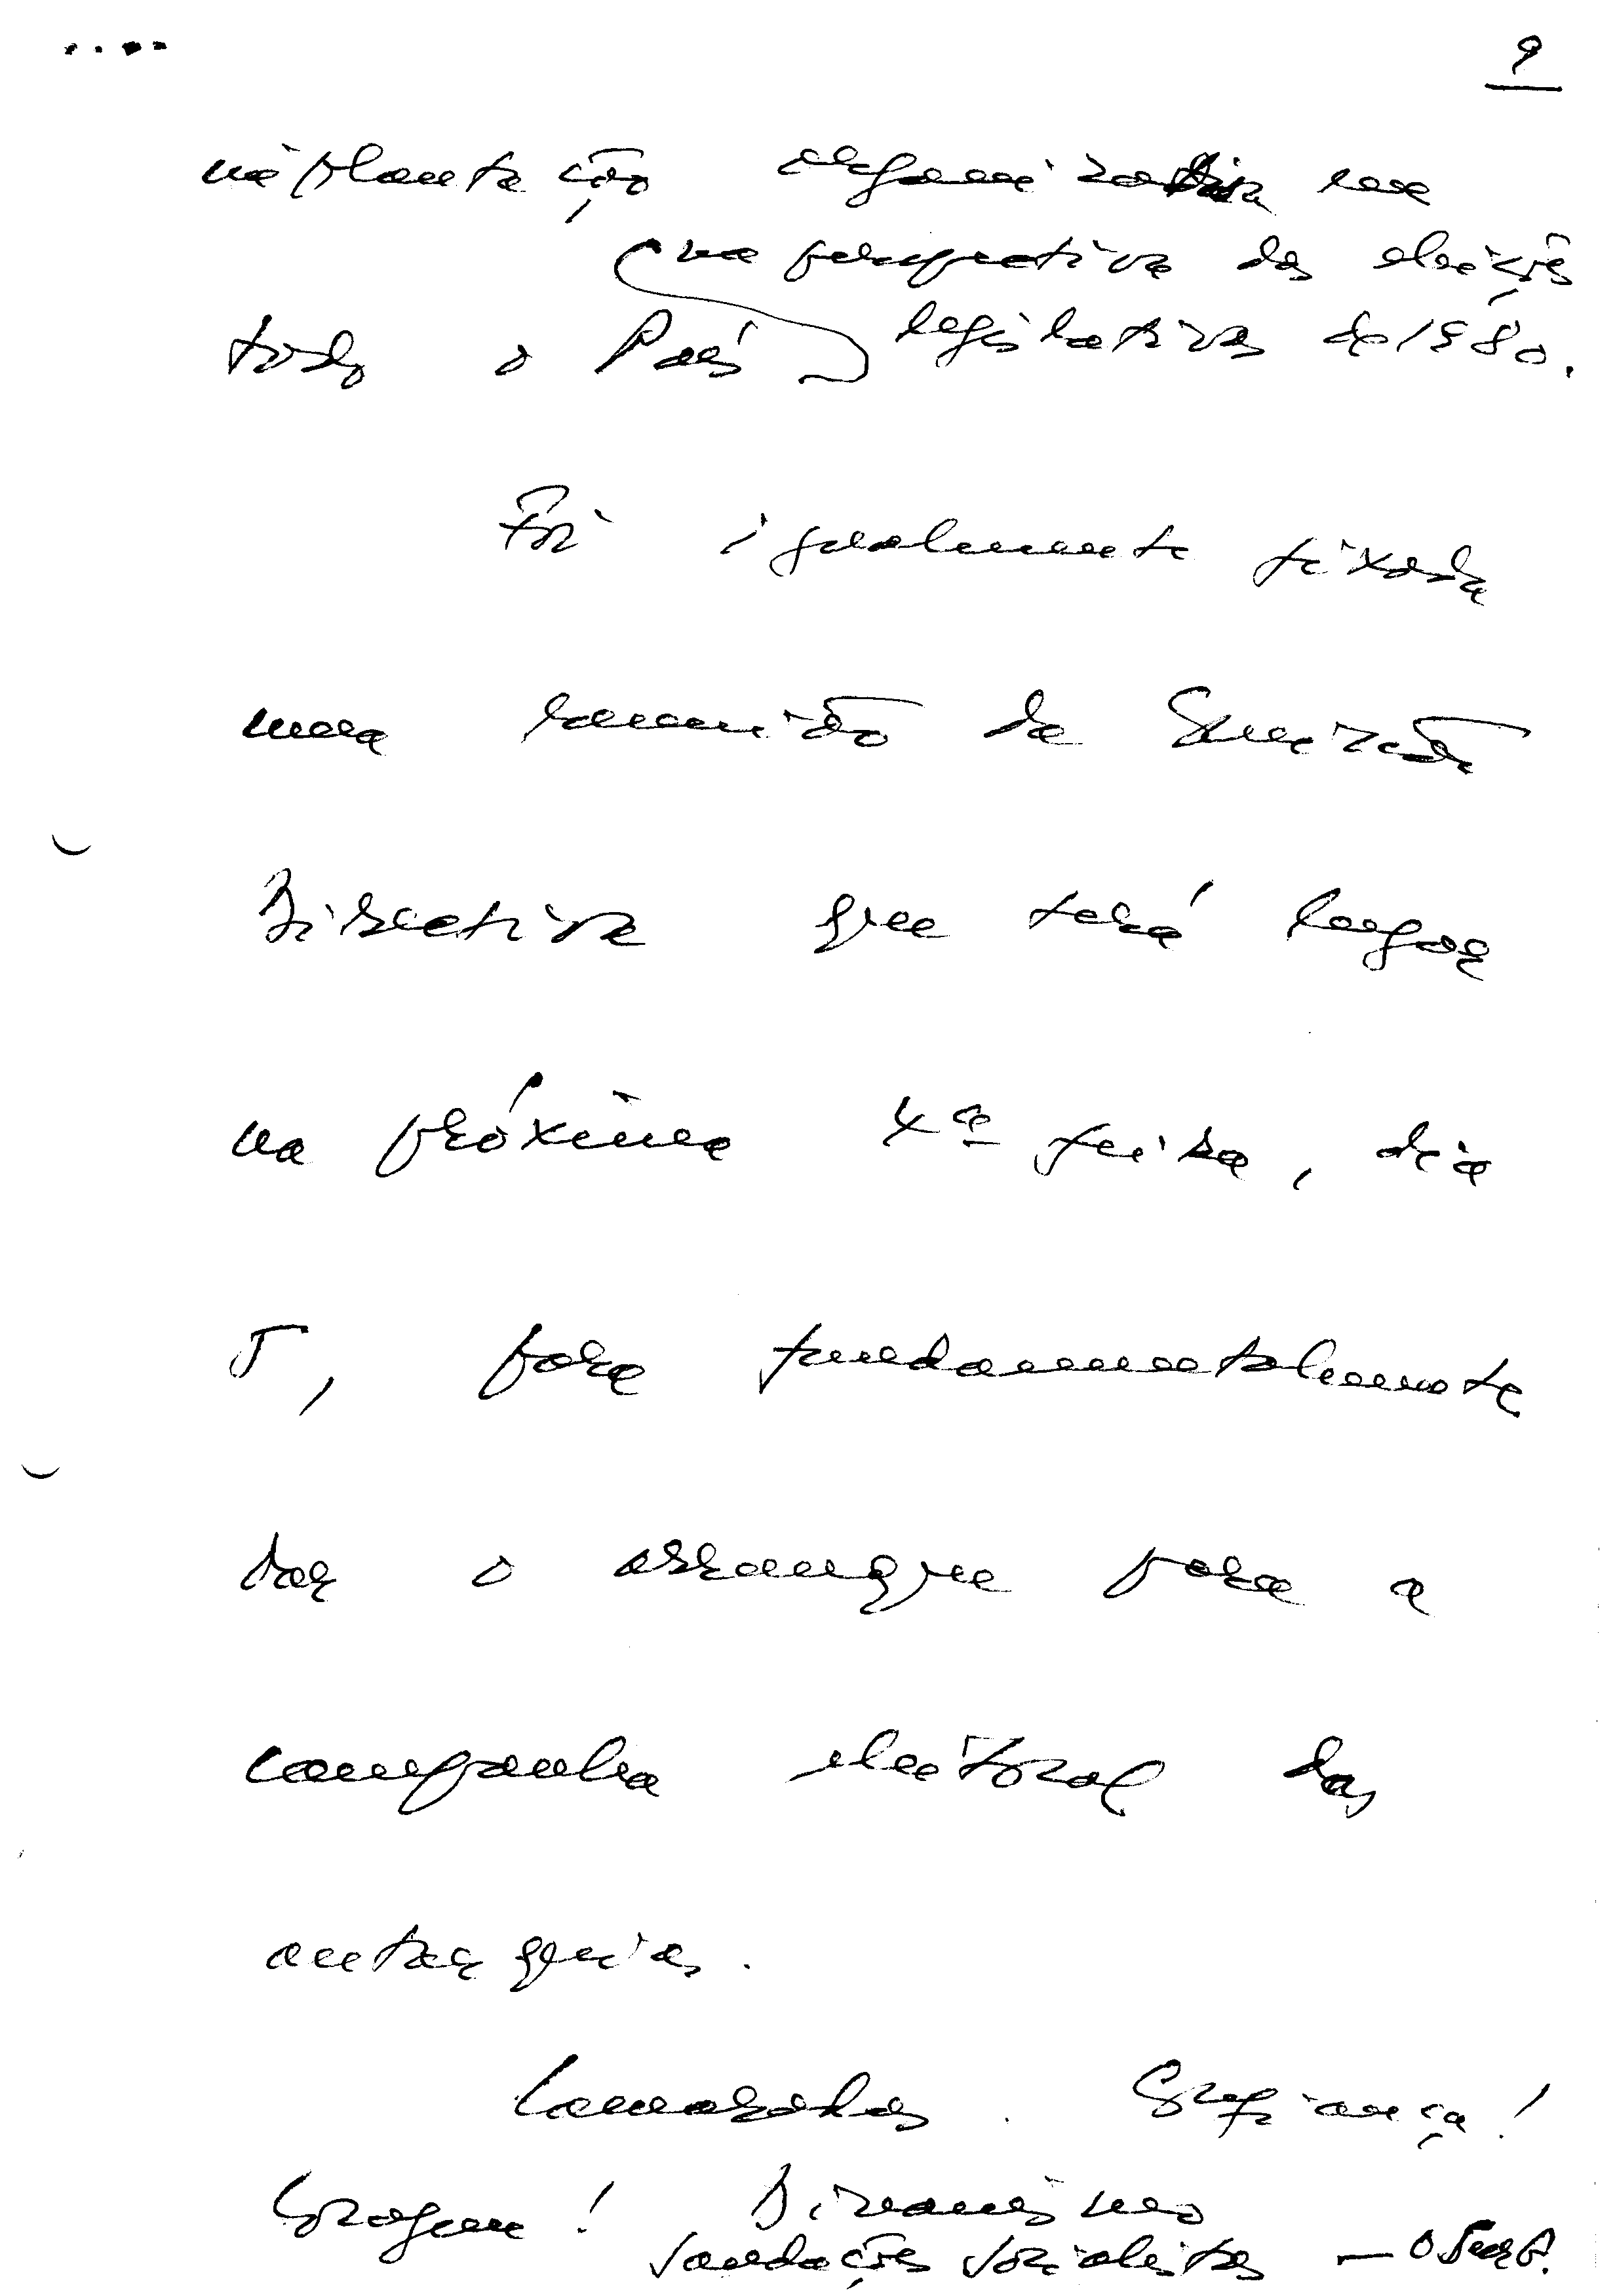 9
implantação organizativa em
na perspectiva das eleições
todo o País legislativas de 1980.
Foi igualmente fixada
uma reunião da Comissão
Directiva que terá lugar
na próxima 4ª feira, dia
5, para fundamentalmente
dar o arranque para a
campanha eleitoral das
autarquias.
Camaradas. Confiança!
Coragem! Dinamismo
Saudações Socialistas —